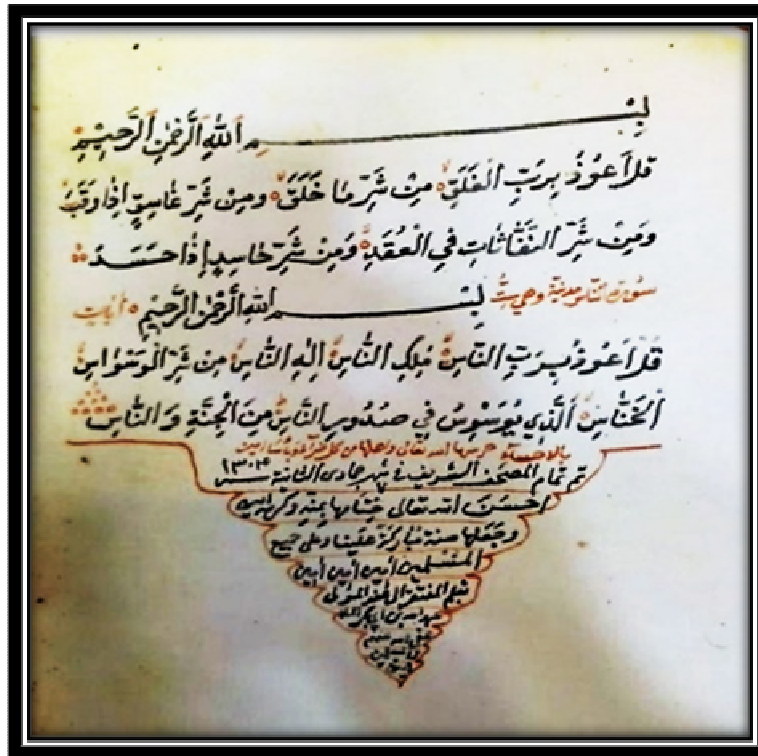 بِسْمِ اللهِ الرَّحْمٰنِ الرَّحِيْمِ
قُلْ اَعُوْذُ بِرَبِّ الْفَلَقِ مِنْ شَرِّ مَا خَلَقَ وَمِنْ شَرِّ غَاسِقٍ اِذَا وَقَبَ
وَمِنْ شَرِّ النَّفَّاثَاتِ فِي الْعُقَدِ وَمِنْ شَرِّ حَاسِدٍ اِذَا حَسَدَ
سورة الناس مدنية وهي ست بِسْمِ اللهِ الرَّحْمٰنِ الرَّحِيْمِ ايات
قُلْ اَعُوْذُ بِرَبِّ النَّاسِ مَلِكِ النَّاسِ اِلٰهِ النَّاسِ مِنْ شَرِّ الْوَسْوَاسِ
الْخَنَّاسِ الَّذِي يُوَسْوِسُ فِي صُدُورِ النَّاسِ مِنَ الْجِنَّةِ وَالنَّاسِ
بالاحساء حرسها الله تعالى واهلها من كل
تم تمام المصحف الشريف في شهر جمادى الثانية سنة ١٣٠٤
احسن الله تعالى ختامها بمنه وكرمه
وجعلها سنة مباركة علينا وعلى جميع
المسلمين امين امين امين
بقلم المفتقر الى